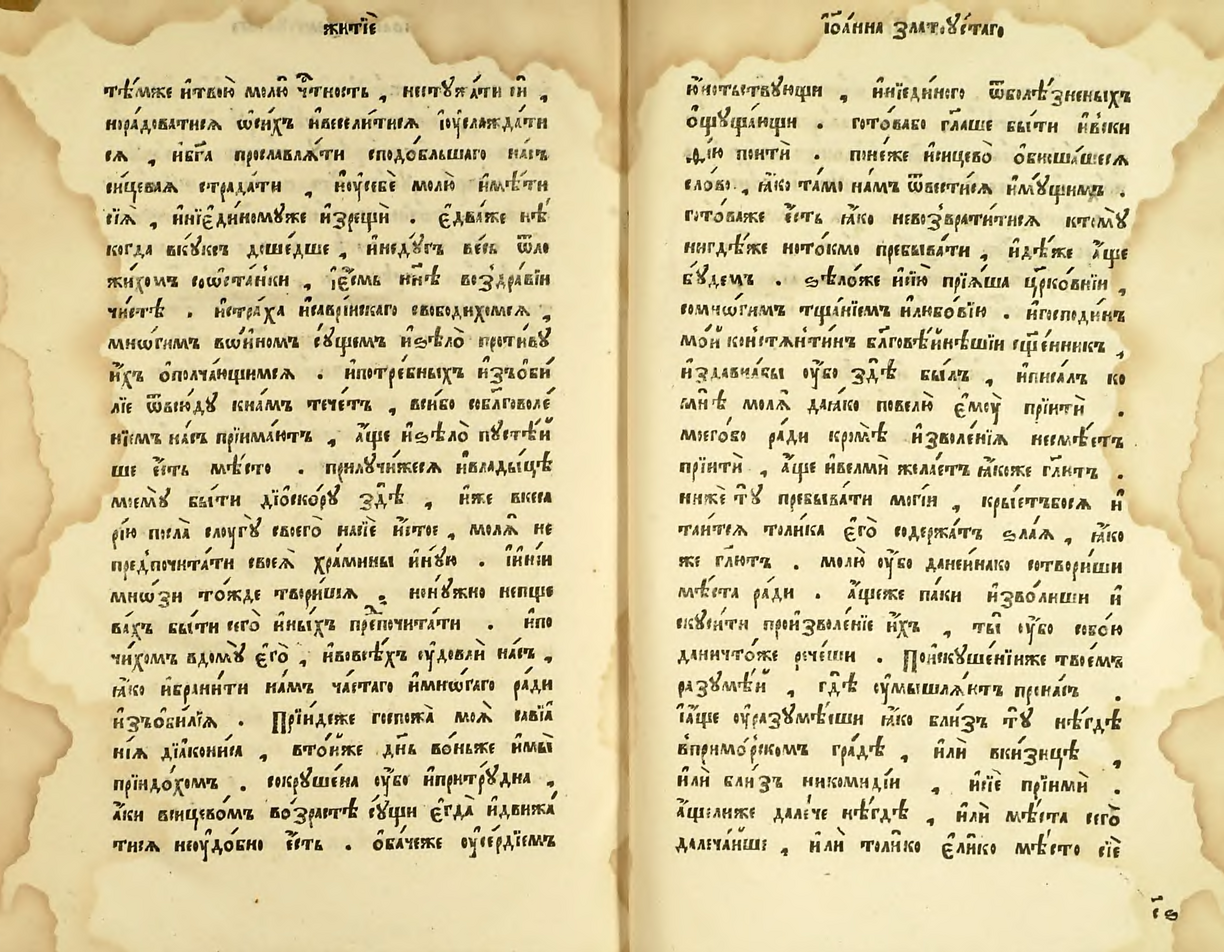 житїѐ
тѣ́мже и҆твою̀ молю̀ чⷭ҇тность , нестꙋжа́ти сѝ ,
норадоватися ѡ҆си́хъ и҆весели́тися і҆оу҆слажда́ти
ся , и҆бг҃а прославля́ти сподо́бльшаго на́съ
сицевая страда́ти , и҆оу҆себѐ молю̀ и҆мѣ́ти
сїѧ̀ , и҆нїе҆ди́номꙋже и҆зрещѝ . є҆два́же нѣ́
когда вкꙋ́ксъ доше́дше , и҆недꙋ́гъ ве́сь ѿло
жи́хомъ соѡ҆ста́нки , і҆є҆́смь нн҃ѣ воздра́вїи
чи́стѣ . и҆стра́ха и҆са́врїискаго свободи́хомся ,
мнѡ́гимъ во́иномъ сꙋ́щемъ и҆ѕѣлѡ̀ проти́вꙋ
и҆́хъ ѡ҆полча́ющимся . и҆потре́бныхъ и҆зъѻби́
лїе ѿвсю́дꙋ кна́мъ тече́тъ , всибо собл҃говоле́
нїемъ на́съ прїима́ютъ , а҆́ще и҆ѕѣлѡ̀ пꙋстѣ́й
ше є҆́сть мѣ́сто . прилꙋчи́жеся и҆влады́цѣ
моемꙋ̀ бы́ти дїо́скорꙋ здѣ̀ , и҆́же вкеса
рі́ю посла̀ слꙋгꙋ̀ своего̀ насїѐ и҆́стое , моля̀ не
предпочита́ти своея̀ хра́мины и҆нꙋ́ю . і҆и҆ні́и
мнѡ́зи то́жде твори́шѧ , но́нꙋжно непще
ва́хъ бы́ти сего̀ и҆ны́хъ преⷣпочита́ти . и҆по
чи́хомъ вдомꙋ̀ є҆гѡ̀ , и҆вовсѣ́хъ оу҆довлѝ на́съ ,
ꙗ҆́ко и҆брани́ти на́мъ ча́стаго и҆мнѡ́гаго ра́ди
и҆зъѻби́лїя . Прїи́деже госпожа̀ моѧ̀ саві́а
нїѧ дїа́кониса , вто́йже дн҃ь во́ньже и҆мы̀
прїидо́хомъ . сокрꙋше́на оу҆́бо и҆притрꙋ́дна ,
а҆́ки всицево́мъ во́зрастѣ сꙋ́щи є҆гда̀ и҆дви́жа
тися неоу҆до́бно є҆́сть . ѻ҆ба́чеже оу҆се́рдїемъ
і҆ѡа́нна златоꙋ́стаго
ю҆́нотьствꙋющи , и҆нїеди́ного ѿболѣ́зненыхъ
ѻ҆щꙋща́ющи . гото́вабо гл҃аше бы́ти и҆вски
ѳїю поитѝ . поне́же и҆сицево̀ ѻ҆бноша́шеся
сло́во , ꙗ҆́ко та́мо на́мъ ѿвести́ся и҆мꙋ́щимъ .
гото́важе є҆́сть ꙗ҆́ко невозврати́тися ктомꙋ̀
нигдѣ́же ното́кмо пребыва́ти , и҆дѣ́же а҆́ще
бꙋ́демъ . ѕѣло́же и҆сїю̀ прїя́ша цр҃ко́внїи ,
сомнѡ́гимъ тща́нїемъ и҆любо́вїю . и҆господи́нъ
мо́й константи́нъ бл҃говѣ́йнѣшїи сщ҃е́нникъ ,
и҆здавна́бы оу҆́бо здѣ̀ бы́лъ , и҆писа́лъ ко
мнѣ̀ моля̀ даꙗ҆́ко повелю̀ є҆мꙋ̀ прїитѝ .
моего́бо ра́ди кромѣ̀ и҆зволе́нїѧ несмѣ́етъ
прїитѝ , а҆́ще и҆велмѝ жела́етъ ꙗ҆́коже гл҃етъ .
ниже́ тꙋ̀ пребыва́ти могі́и , кры́етъбося и҆
таи́тся толи́ка є҆го̀ содержа́тъ ѕла́я , ꙗ҆́ко
же гл҃ютъ . молю̀ оу҆́бо данеи҆на́ко сотвори́ши
мѣ́ста ра́ди . а҆́щеже па́ки и҆зво́лиши и҆
скꙋси́ти произволе́нїе и҆́хъ , ты̀ оу҆́бо собо́ю
даничто́же рече́ши . Пои҆скꙋше́нїиже твое́мъ
разꙋмѣ́й , гдѣ̀ оу҆мышля́ютъ прона́съ .
і҆а҆́ще оу҆разꙋмѣ́еши ꙗ҆́ко бли́зъ тꙋ̀ нѣ́гдѣ
впримо́рскомъ гра́дѣ , и҆лѝ вкизи́цѣ ,
и҆лѝ бли́зъ никоми́дїи , и҆сїѐ прїимѝ .
а҆́щелиже дале́че нѣ́гдѣ , и҆лѝ мѣ́ста сего̀
далеча́йше , и҆лѝ толи́ко є҆ли́ко мѣ́сто сїѐ